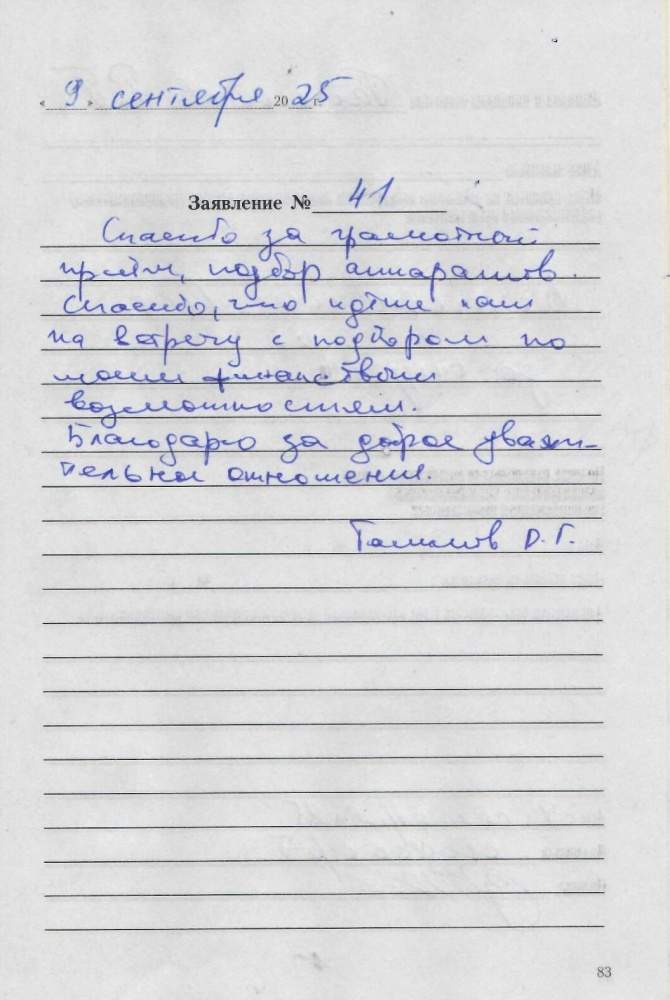 « 9 » сентября 2025 г.
Заявление № 41
Спасибо за грамотной
приём, подбор аппаратов.
Спасибо, что идёте нам
на встречу с подбором по
моим финансовым
возможностям.
Благодарю за доброе уважи-
тельное отношение.
Д. Г.
83